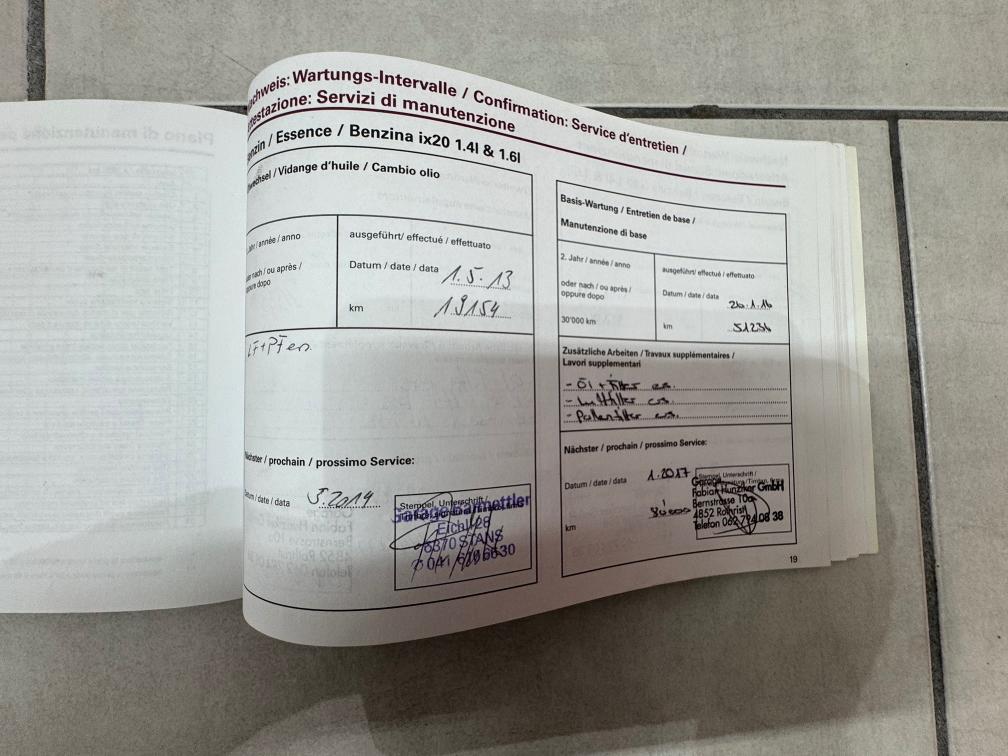 chweis: Wartungs-Intervalle / Confirmation: Service d'entretien /
testazione: Servizi di manutenzione
nzin / Essence / Benzina ix20 1.4l & 1.6l
wechsel / Vidange d'huile / Cambio olio
Jahr / année / anno
ausgeführt/ effectué / effettuato
er nach / ou après /
oppure dopo
Datum / date / data 1.5.13
km 19154
Nächster / prochain / prossimo Service:
Datum / date / data 5.2014
Stempel, Unterschrift /
Garage Barmettler
Eichli 28
6370 STANS
041 6196630
Basis-Wartung / Entretien de base /
Manutenzione di base
2. Jahr / année / anno
ausgeführt/ effectué / effettuato
oder nach / ou après /
oppure dopo
Datum / date / data 26.1.16
30'000 km
km 51236
Zusätzliche Arbeiten / Travaux supplémentaires /
Lavori supplementari
- Öl + Filter es.
- Luftfilter es.
- Pollenfilter es.
Nächster / prochain / prossimo Service:
Datum / date / data 1.2017
km
Stempel, Unterschrift /
Garage
Fabian Hunziker GmbH
Bernstrasse 10a
4852 Rothrist
Telefon 062 794 08 38
19
Piano di manutenzione